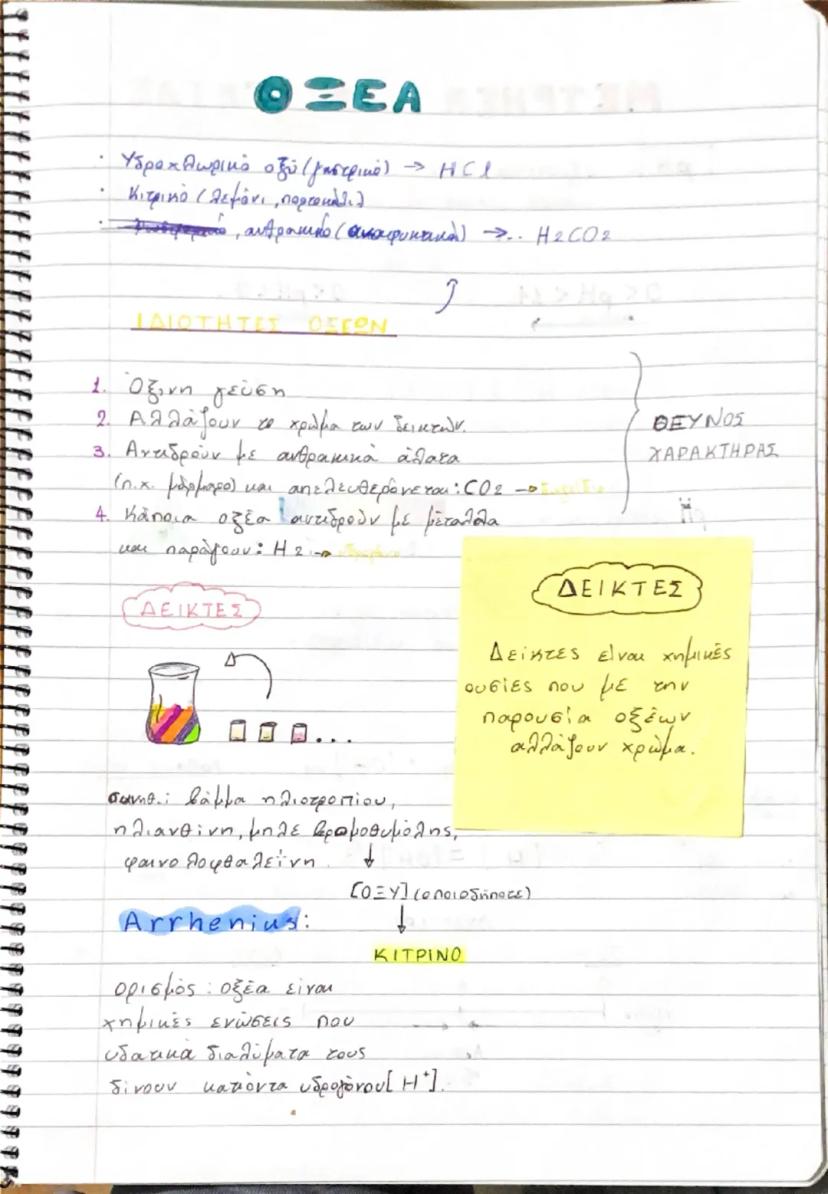 ΟΞΕΑ
· Υδροχλωρικό οξύ (γαστρικό) → HCl
· Κιτρικό (λεμόνι, πορτοκάλι)
· , ανθρακικό (αναψυκτικά) →.. H2CO2
ΙΔΙΟΤΗΤΕΣ ΟΞΕΩΝ
1. Όξινη γεύση
2. Αλλάζουν το χρώμα των δεικτών.
3. Αντιδρούν με ανθρακικά άλατα
(π.χ. μάρμαρο) και απελευθερώνεται: CO2 →
4. Κάποια οξέα αντιδρούν με μέταλλα
και παράγουν: H2 →
ΟΞΥΝΟΣ
ΧΑΡΑΚΤΗΡΑΣ
ΔΕΙΚΤΕΣ
ΔΕΙΚΤΕΣ
Δείκτες είναι χημικές
ουσίες που με την
παρουσία οξέων
αλλάζουν χρώμα.
συνηθ.: βάμμα ηλιοτροπίου,
ηλιανθίνη, μπλε βρωμοθυμόλης,
φαινολοφθαλεΐνη.
[ΟΞΥ] (οποιοδήποτε)
Arrhenius:
ΚΙΤΡΙΝΟ
ορισμός: οξέα είναι
χημικές ενώσεις που
υδατικά διαλύματα τους
δίνουν κατιόντα υδρογόνου [H+].